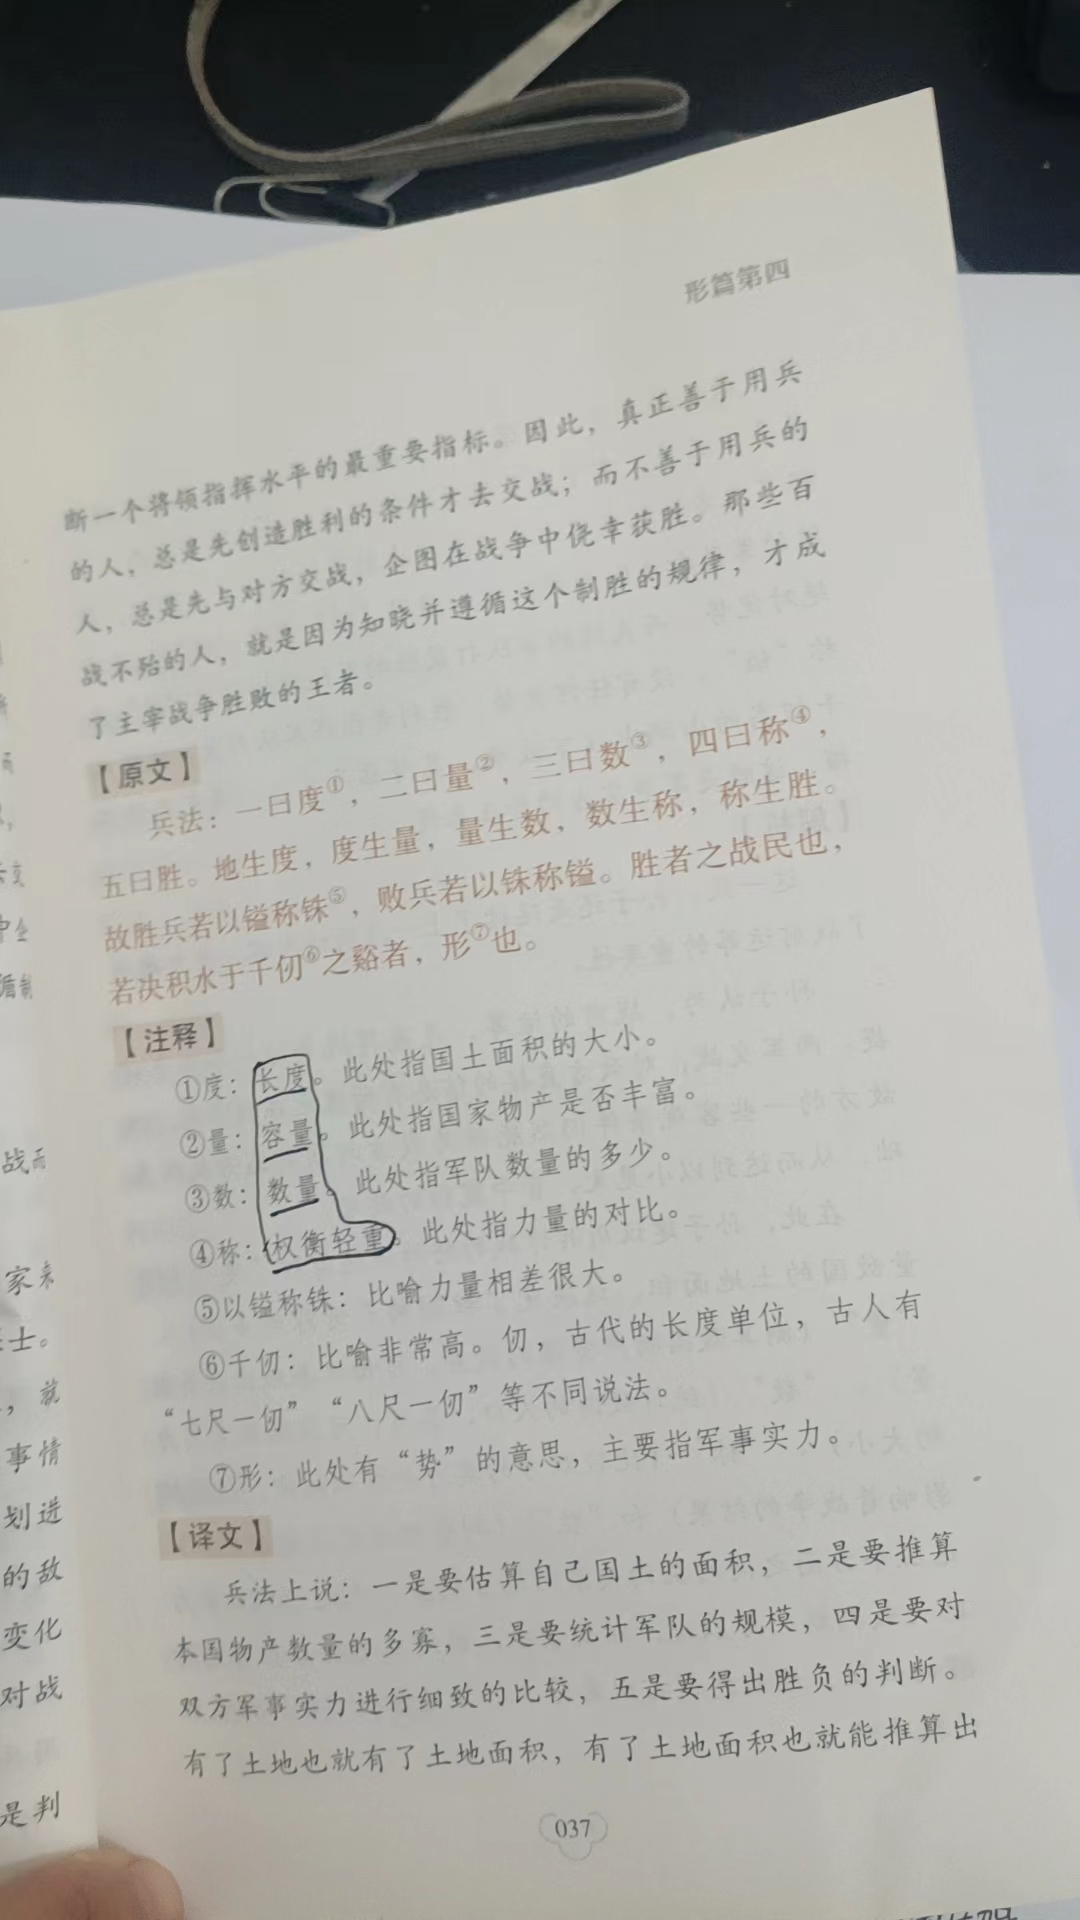 形篇第四
断一个将领指挥水平的最重要指标。因此，真正善于用兵
的人，总是先创造胜利的条件才去交战；而不善于用兵的
人，总是先与对方交战，企图在战争中侥幸获胜。那些百
战不殆的人，就是因为知晓并遵循这个制胜的规律，才成
了主宰战争胜败的王者。
【原文】
兵法：一曰度①，二曰量②，三曰数③，四曰称④，
五曰胜。地生度，度生量，量生数，数生称，称生胜。
故胜兵若以镒称铢⑤，败兵若以铢称镒。胜者之战民也，
若决积水于千仞⑥之谿者，形⑦也。
【注释】
①度：长度。此处指国土面积的大小。
②量：容量。此处指国家物产是否丰富。
③数：数量。此处指军队数量的多少。
④称：权衡轻重。此处指力量的对比。
⑤以镒称铢：比喻力量相差很大。
⑥千仞：比喻非常高。仞，古代的长度单位，古人有
“七尺一仞”“八尺一仞”等不同说法。
⑦形：此处有“势”的意思，主要指军事实力。
【译文】
兵法上说：一是要估算自己国土的面积，二是要推算
本国物产数量的多寡，三是要统计军队的规模，四是要对
双方军事实力进行细致的比较，五是要得出胜负的判断。
有了土地也就有了土地面积，有了土地面积也就能推算出
037
战而
士。
，就
事情
划进
的敌
变化
对战
是判